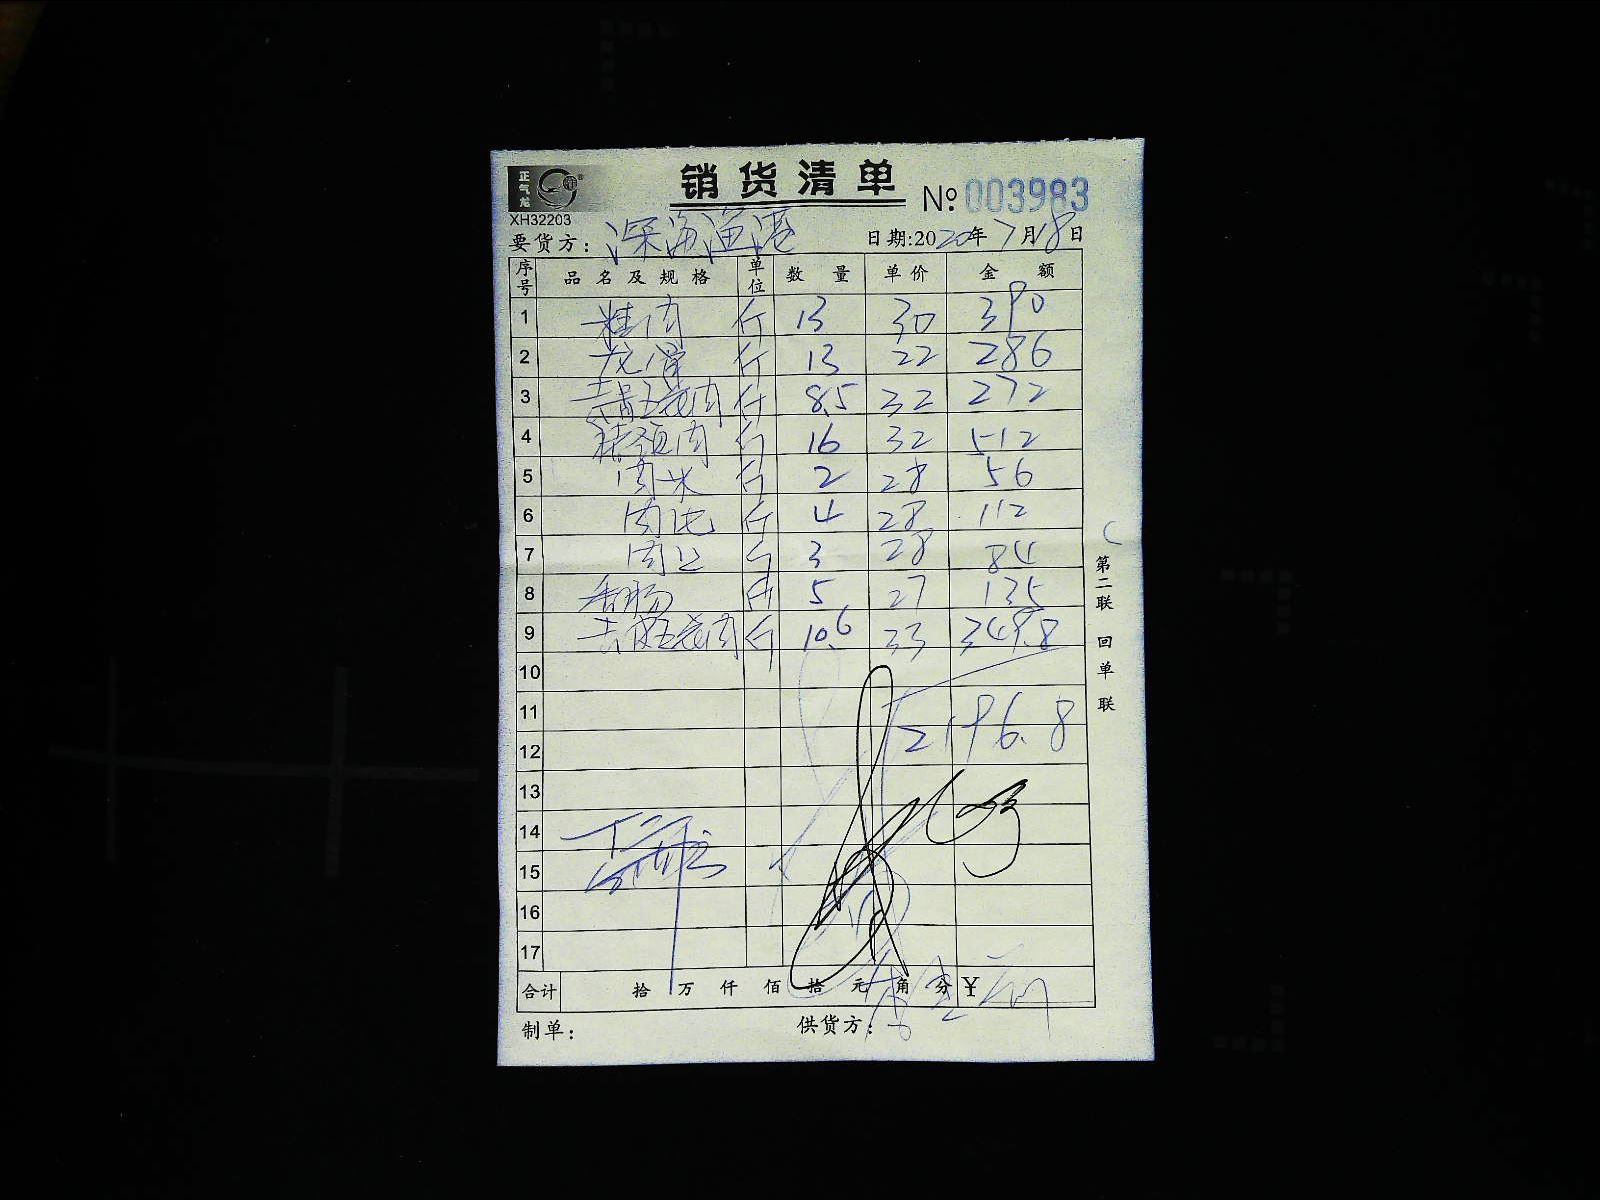 正气龙
销货清单
XH32203
No: 003983
要货方: 深海渔港 日期:2020年7月18日
序号 品名及规格 单位 数量 单价 金额
1 精肉 斤 13 30 390
2 龙骨 斤 13 22 286
3 去骨五花肉 斤 8.5 32 272
4 猪颈肉 斤 16 32 512
5 肉米 斤 2 28 56
6 肉 斤 4 28 112
7 肉 斤 3 28 84
8 香肠 斤 5 27 135
9 去皮五花肉 斤 10.6 33 349.8
10
11 2196.8
12
13
14
15
16
17
合计 拾 万 仟 佰 拾 元 角 分 ¥
制单: 供货方:
第二联 回单联